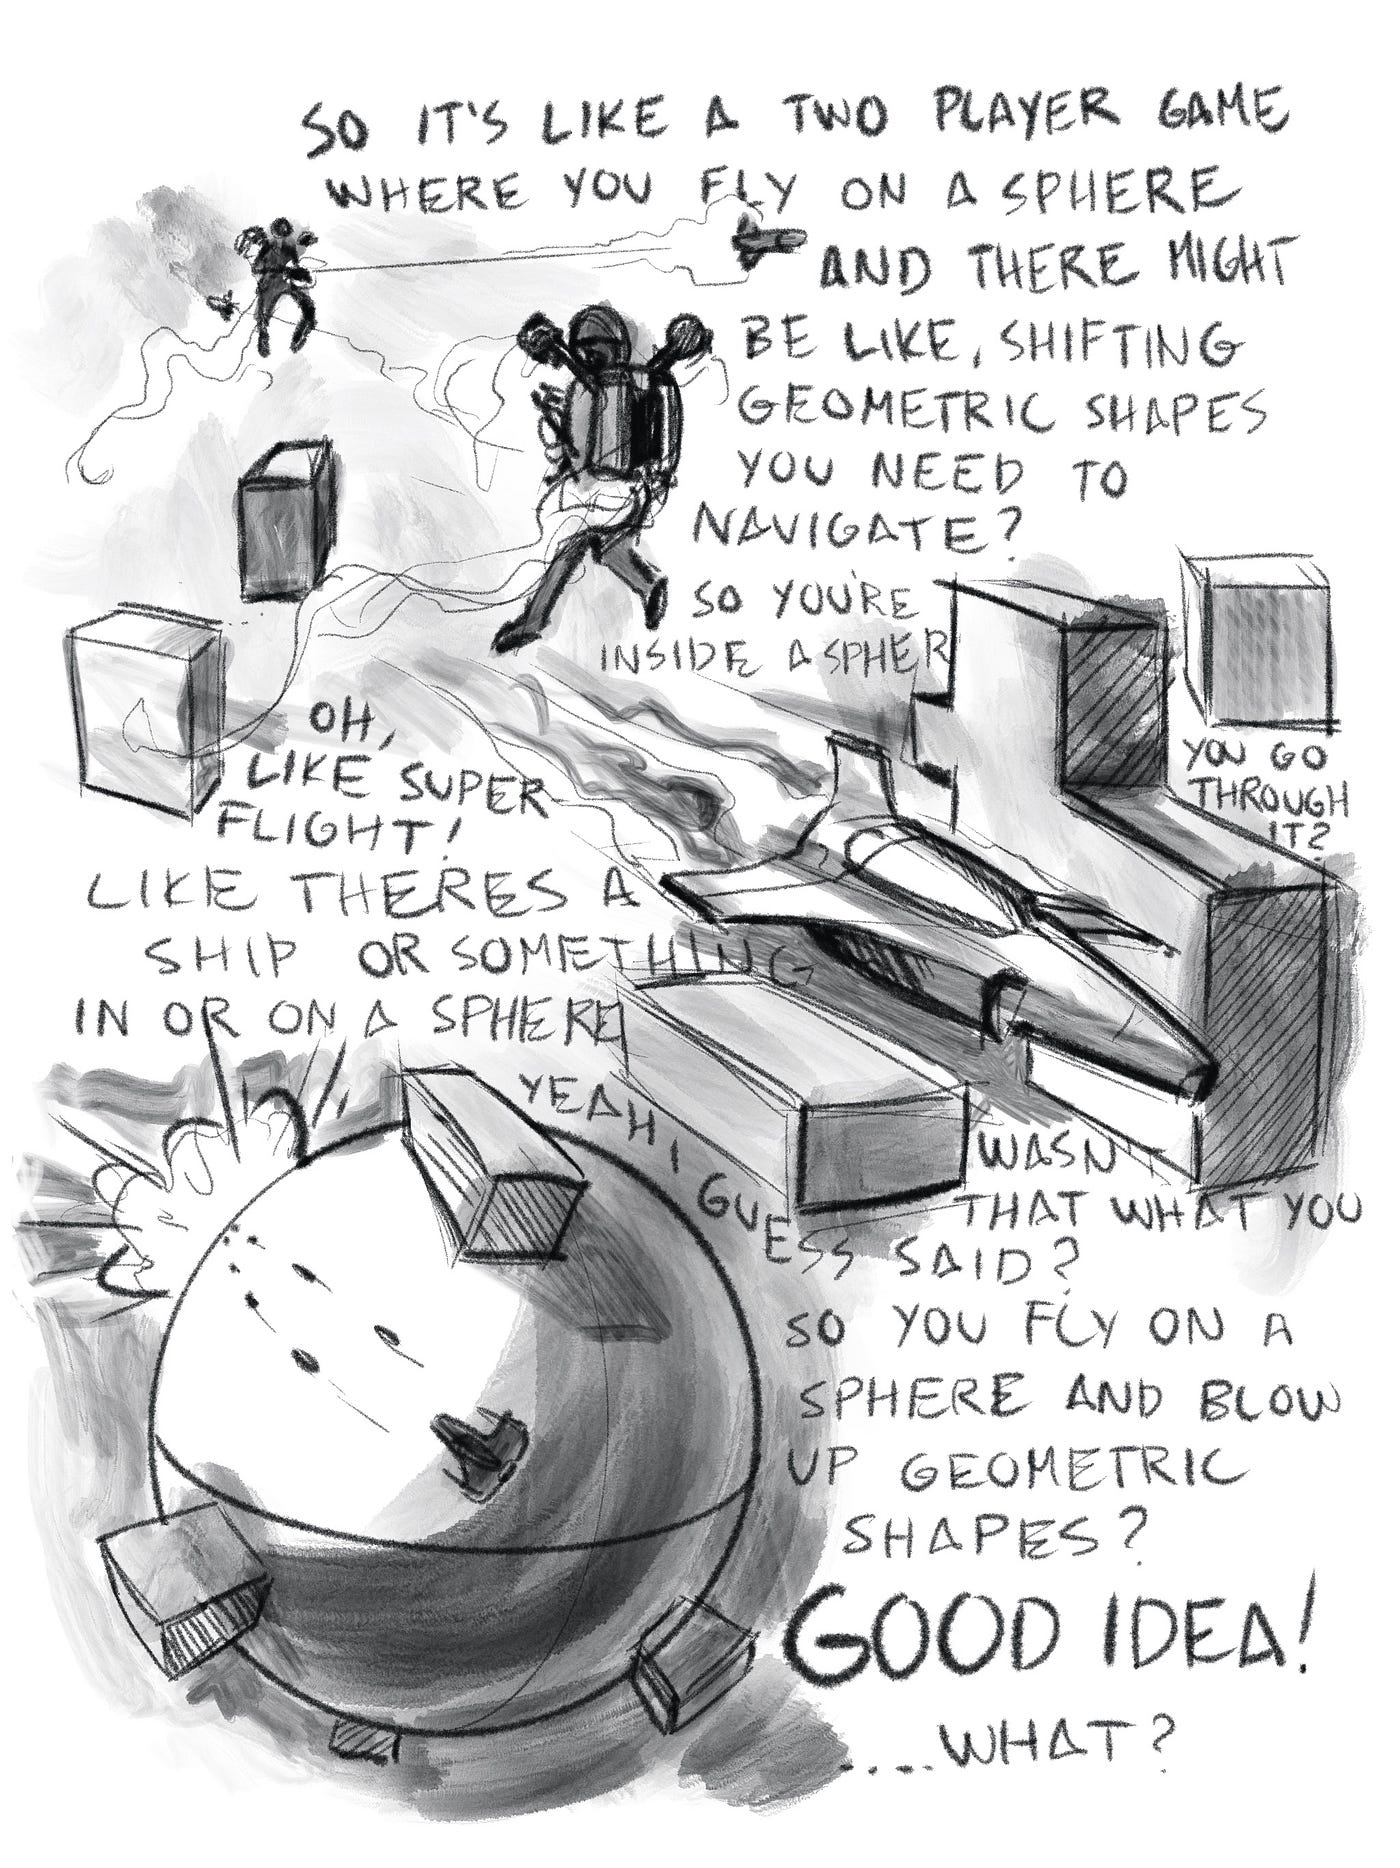 SO IT'S LIKE A TWO PLAYER GAME
WHERE YOU FLY ON A SPHERE
AND THERE MIGHT
BE LIKE, SHIFTING
GEOMETRIC SHAPES
YOU NEED TO
NAVIGATE?
SO YOU'RE
INSIDE A SPHER
YOU GO
THROUGH
IT?
OH,
LIKE SUPER
FLIGHT!
LIKE THERES A
SHIP OR SOMETHING
IN OR ON A SPHERE
YEAH I
GUESS
WASN'T
THAT WHAT YOU
SAID?
SO YOU FLY ON A
SPHERE AND BLOW
UP GEOMETRIC
SHAPES?
GOOD IDEA!
....WHAT?